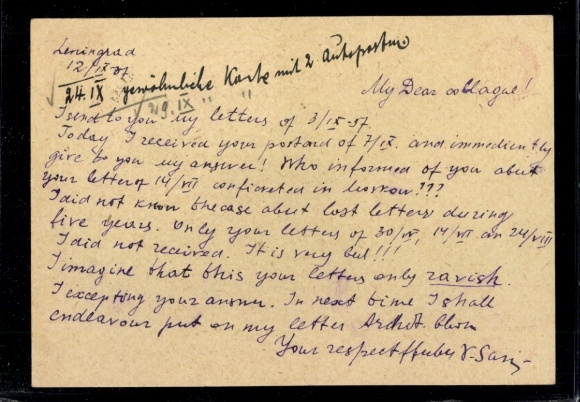 Leningrad
12/IX 37
24.IX gewöhnliche Karte mit 2 Autopostmo
√29.IX " "
My Dear collague!
I send to you my letters of 3/IX-37
Today I received your postcard of 7/IX. and immedient by
give to you my answer! Who informed of you about
your letter of 14/VII conficreted in Moskow???
I did not know the case about lost letters during
five years. Only your letters of 30/IV, 14/VII an 24/VIII
I did not received. It is very bad!!!
I imagine that this your letters only ravish.
I excepting your answer. In next time I shall
endeavour put on my letter
Your respectffully V.